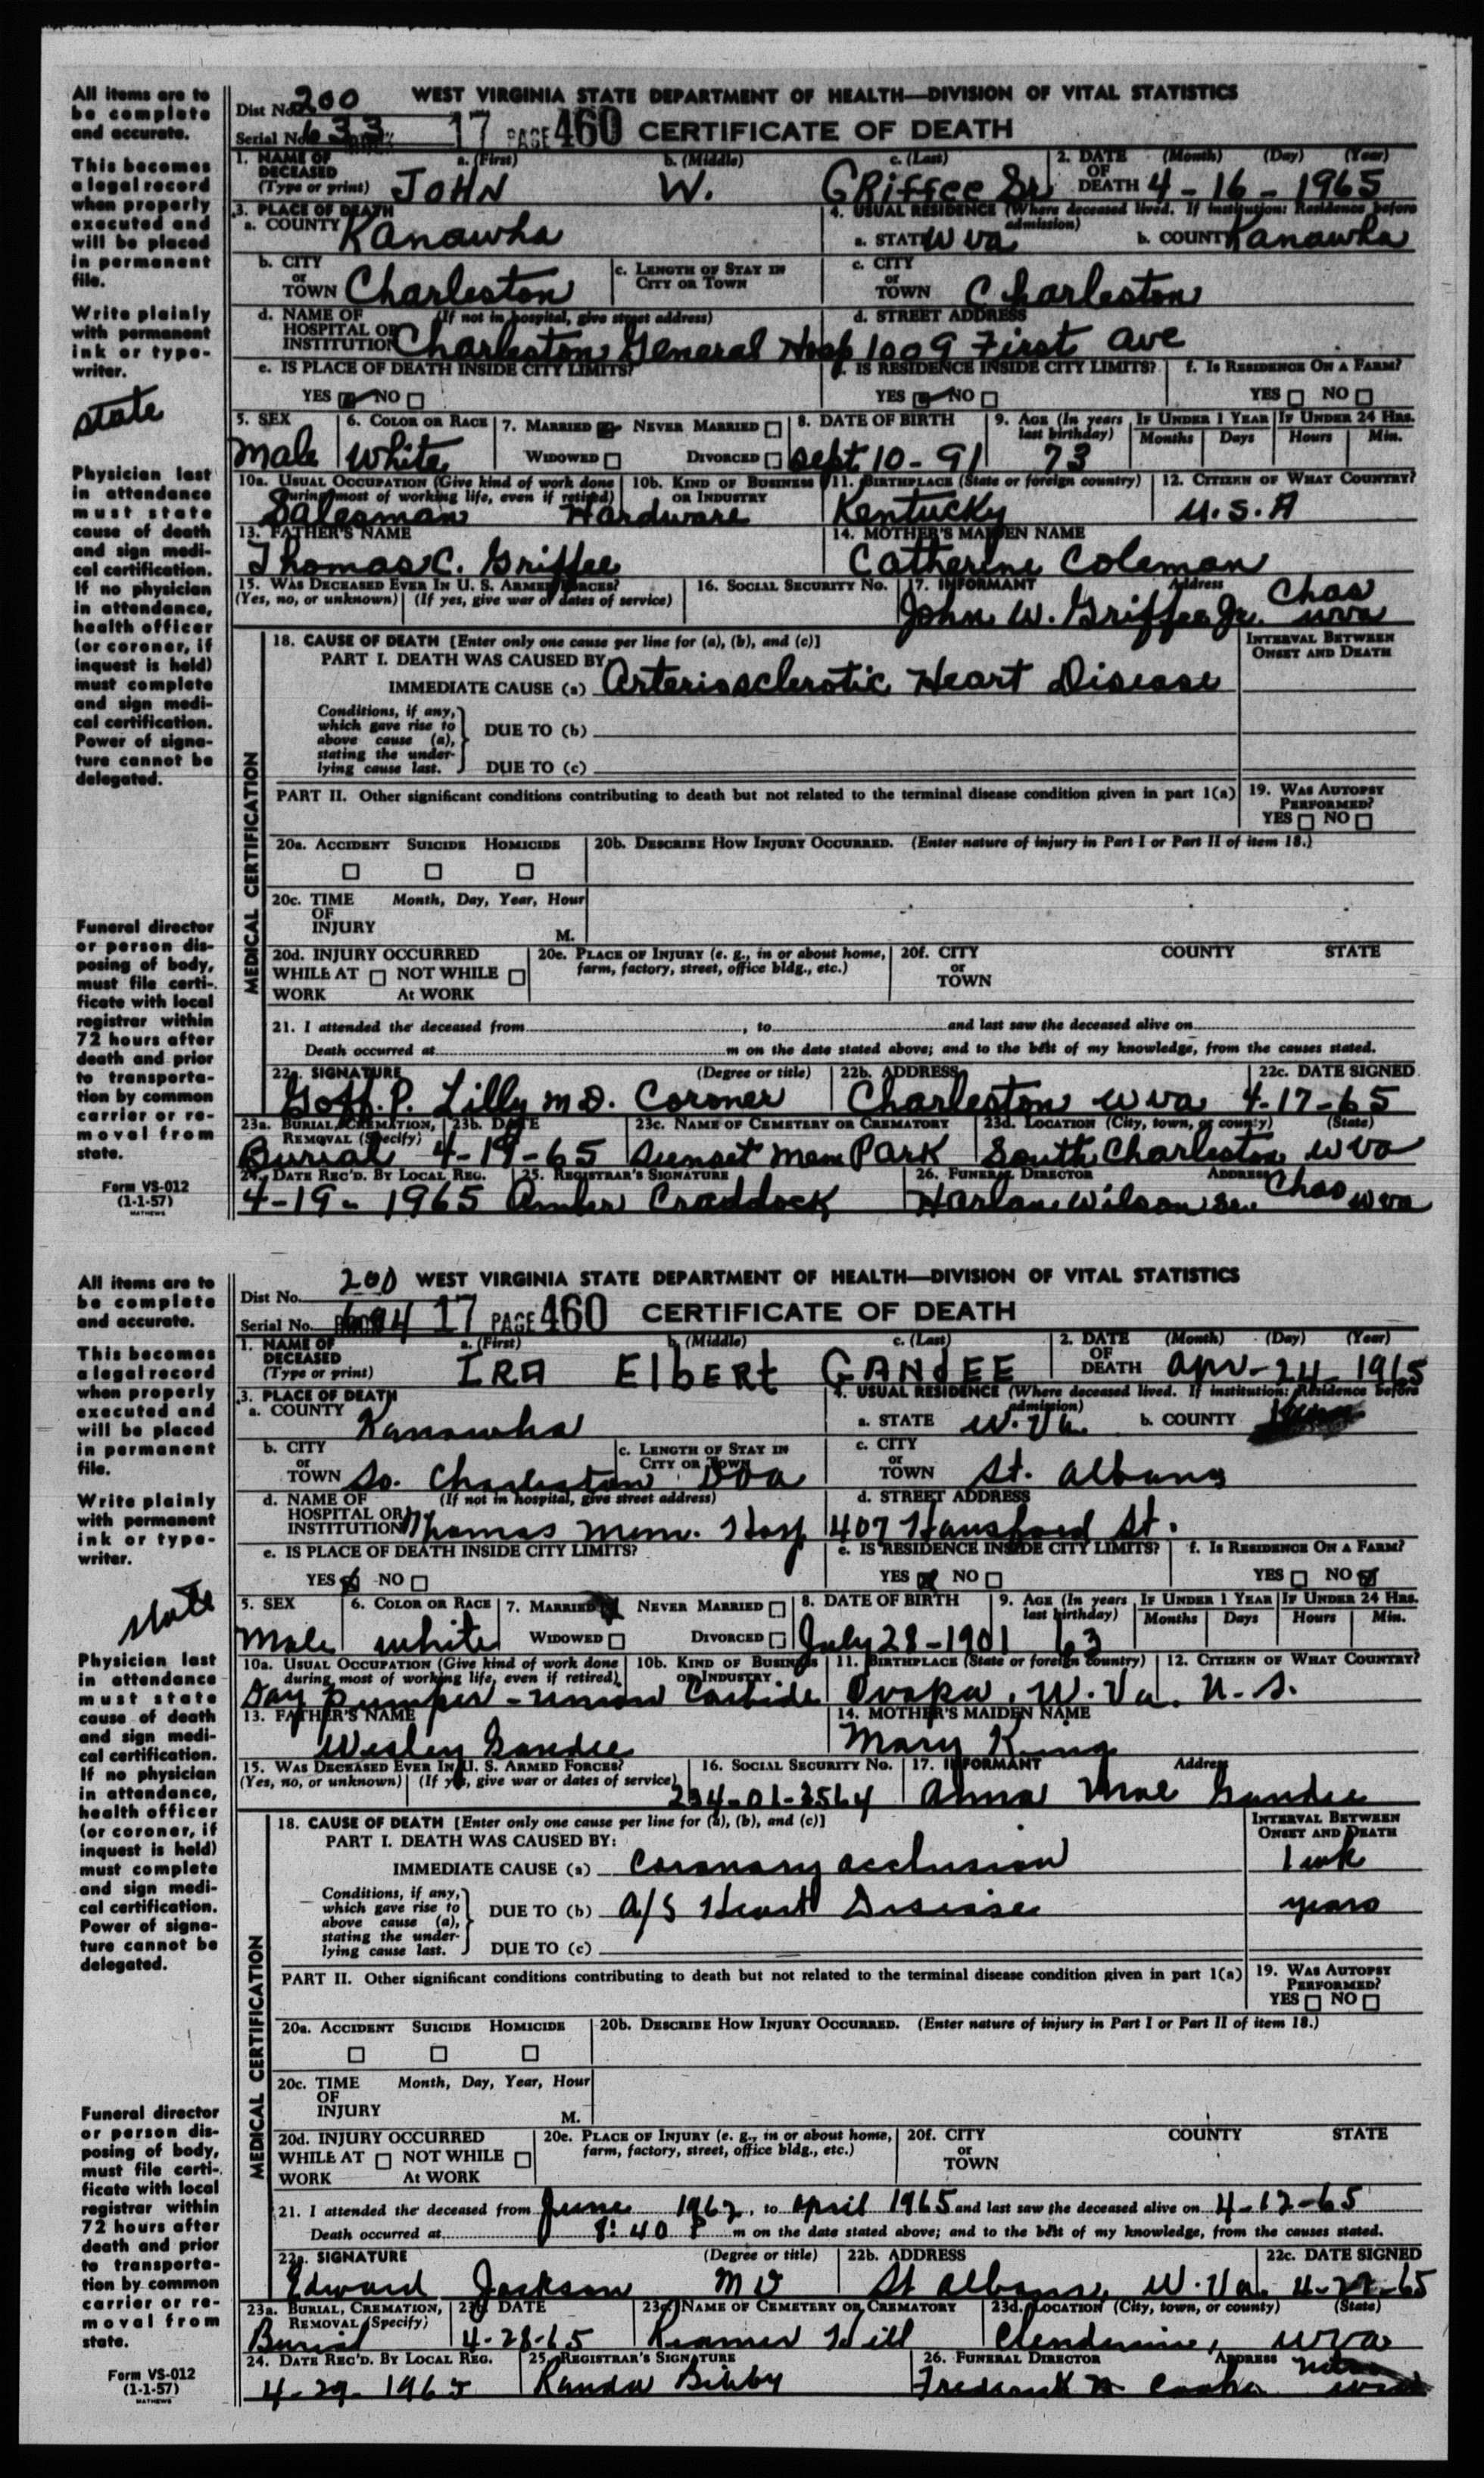 All items are to be complete and accurate.
This becomes a legal record when properly executed and will be placed in permanent file.
Write plainly with permanent ink or type-writer.
state
Physician last in attendance must state cause of death and sign medi-cal certification. If no physician in attendance, health officer (or coroner, if inquest is held) must complete and sign medi-cal certification. Power of signa-ture cannot be delegated.
Funeral director or person dis-posing of body, must file certi-ficate with local registrar within 72 hours after death and prior to transporta-tion by common carrier or re-moval from state.
Form VS-012
(1-1-57)
MATHEWS
WEST VIRGINIA STATE DEPARTMENT OF HEALTH—DIVISION OF VITAL STATISTICS
Dist No. 200
Serial No. 633 17 PAGE 460 CERTIFICATE OF DEATH
1. NAME OF DECEASED (Type or print) a. (First) b. (Middle) c. (Last) 2. DATE OF DEATH (Month) (Day) (Year)
JOHN W. GRiffee Sr 4-16-1965
3. PLACE OF DEATH 4. USUAL RESIDENCE (Where deceased lived. If institution: Residence before admission)
a. COUNTY Kanawha a. STATE W Va b. COUNTY Kanawha
b. CITY or TOWN Charleston c. LENGTH OF STAY IN CITY OR TOWN c. CITY or TOWN Charleston
d. NAME OF HOSPITAL OR INSTITUTION (If not in hospital, give street address) Charleston General Hosp d. STREET ADDRESS 1009 First Ave
e. IS PLACE OF DEATH INSIDE CITY LIMITS? IS RESIDENCE INSIDE CITY LIMITS? f. IS RESIDENCE ON A FARM?
YES NO YES NO YES NO
5. SEX 6. COLOR OR RACE 7. MARRIED NEVER MARRIED 8. DATE OF BIRTH 9. AGE (In years last birthday) IF UNDER 1 YEAR IF UNDER 24 HRS.
Months Days Hours Min.
Male White WIDOWED DIVORCED Sept 10-91 73
10a. USUAL OCCUPATION (Give kind of work done during most of working life, even if retired) 10b. KIND OF BUSINESS OR INDUSTRY 11. BIRTHPLACE (State or foreign country) 12. CITIZEN OF WHAT COUNTRY?
Salesman Hardware Kentucky U.S.A
13. FATHER'S NAME 14. MOTHER'S MAIDEN NAME
Thomas C. Griffee Catherine Coleman
15. WAS DECEASED EVER IN U. S. ARMED FORCES? 16. SOCIAL SECURITY NO. 17. INFORMANT Address
(Yes, no, or unknown) (If yes, give war or dates of service) John W. Griffee Jr. Chas wva
MEDICAL CERTIFICATION
18. CAUSE OF DEATH [Enter only one cause per line for (a), (b), and (c)] INTERVAL BETWEEN ONSET AND DEATH
PART I. DEATH WAS CAUSED BY
IMMEDIATE CAUSE (a) Arteriosclerotic Heart Disease
Conditions, if any, which gave rise to above cause (a), stating the under-lying cause last.
DUE TO (b)
DUE TO (c)
PART II. Other significant conditions contributing to death but not related to the terminal disease condition given in part 1(a) 19. WAS AUTOPSY PERFORMED?
YES NO
20a. ACCIDENT SUICIDE HOMICIDE 20b. DESCRIBE HOW INJURY OCCURRED. (Enter nature of injury in Part I or Part II of item 18.)
20c. TIME OF INJURY Month, Day, Year, Hour M.
20d. INJURY OCCURRED 20e. PLACE OF INJURY (e. g., in or about home, farm, factory, street, office bldg., etc.) 20f. CITY or TOWN COUNTY STATE
WHILE AT WORK NOT WHILE At WORK
21. I attended the deceased from , to and last saw the deceased alive on
Death occurred at m on the date stated above; and to the best of my knowledge, from the causes stated.
22a. SIGNATURE (Degree or title) 22b. ADDRESS 22c. DATE SIGNED
Goff. P. Lilly M.D. Coroner Charleston W Va 4-17-65
23a. BURIAL, CREMATION, REMOVAL (Specify) 23b. DATE 23c. NAME OF CEMETERY OR CREMATORY 23d. LOCATION (City, town, or county) (State)
Burial 4-19-65 Sunset Mem Park South Charleston W Va
24. DATE REC'D. BY LOCAL REG. 25. REGISTRAR'S SIGNATURE 26. FUNERAL DIRECTOR ADDRESS
4-19-1965 Amber Craddock Harlan Wilson Sr. Chas W va
All items are to be complete and accurate.
This becomes a legal record when properly executed and will be placed in permanent file.
Write plainly with permanent ink or type-writer.
State
Physician last in attendance must state cause of death and sign medi-cal certification. If no physician in attendance, health officer (or coroner, if inquest is held) must complete and sign medi-cal certification. Power of signa-ture cannot be delegated.
Funeral director or person dis-posing of body, must file certi-ficate with local registrar within 72 hours after death and prior to transporta-tion by common carrier or re-moval from state.
Form VS-012
(1-1-57)
MATHEWS
WEST VIRGINIA STATE DEPARTMENT OF HEALTH—DIVISION OF VITAL STATISTICS
Dist No. 200
Serial No. 17 PAGE 460 CERTIFICATE OF DEATH
1. NAME OF DECEASED (Type or print) a. (First) b. (Middle) c. (Last) 2. DATE OF DEATH (Month) (Day) (Year)
IRA ElbERt GANdEE Apr-24 1965
3. PLACE OF DEATH 4. USUAL RESIDENCE (Where deceased lived. If institution: Residence before admission)
a. COUNTY Kanawha a. STATE W. Va. b. COUNTY
b. CITY or TOWN So. Charleston c. LENGTH OF STAY IN CITY OR TOWN DOA c. CITY or TOWN St. Albans
d. NAME OF HOSPITAL OR INSTITUTION (If not in hospital, give street address) Thomas Mem. Hosp d. STREET ADDRESS 407 Hansford St.
e. IS PLACE OF DEATH INSIDE CITY LIMITS? e. IS RESIDENCE INSIDE CITY LIMITS? f. IS RESIDENCE ON A FARM?
YES NO YES NO YES NO
5. SEX 6. COLOR OR RACE 7. MARRIED NEVER MARRIED 8. DATE OF BIRTH 9. AGE (In years last birthday) IF UNDER 1 YEAR IF UNDER 24 HRS.
Months Days Hours Min.
Male white WIDOWED DIVORCED July 28-1901 63
10a. USUAL OCCUPATION (Give kind of work done during most of working life, even if retired) 10b. KIND OF BUSINESS OR INDUSTRY 11. BIRTHPLACE (State or foreign country) 12. CITIZEN OF WHAT COUNTRY?
Day Pumper - Union Carbide Ovapa, W. Va. U.S.
13. FATHER'S NAME 14. MOTHER'S MAIDEN NAME
Wesley Gandee Mary King
15. WAS DECEASED EVER IN U. S. ARMED FORCES? 16. SOCIAL SECURITY NO. 17. INFORMANT Address
(Yes, no, or unknown) (If yes, give war or dates of service) 234-01-3564 Anna Mae Gandee
MEDICAL CERTIFICATION
18. CAUSE OF DEATH [Enter only one cause per line for (a), (b), and (c)] INTERVAL BETWEEN ONSET AND DEATH
PART I. DEATH WAS CAUSED BY:
IMMEDIATE CAUSE (a) Coronary occlusion 1 wk
Conditions, if any, which gave rise to above cause (a), stating the under-lying cause last.
DUE TO (b) A/S Heart Disease years
DUE TO (c)
PART II. Other significant conditions contributing to death but not related to the terminal disease condition given in part 1(a) 19. WAS AUTOPSY PERFORMED?
YES NO
20a. ACCIDENT SUICIDE HOMICIDE 20b. DESCRIBE HOW INJURY OCCURRED. (Enter nature of injury in Part I or Part II of item 18.)
20c. TIME OF INJURY Month, Day, Year, Hour M.
20d. INJURY OCCURRED 20e. PLACE OF INJURY (e. g., in or about home, farm, factory, street, office bldg., etc.) 20f. CITY or TOWN COUNTY STATE
WHILE AT WORK NOT WHILE At WORK
21. I attended the deceased from June 1962, to April 1965 and last saw the deceased alive on 4-12-65
Death occurred at 8:40 P m on the date stated above; and to the best of my knowledge, from the causes stated.
22a. SIGNATURE (Degree or title) 22b. ADDRESS 22c. DATE SIGNED
Edward Jackson MD St Albans, W. Va. 4-27-65
23a. BURIAL, CREMATION, REMOVAL (Specify) 23b. DATE 23c. NAME OF CEMETERY OR CREMATORY 23d. LOCATION (City, town, or county) (State)
Burial 4-28-65 Hill Clendenin, W Va
24. DATE REC'D. BY LOCAL REG. 25. REGISTRAR'S SIGNATURE 26. FUNERAL DIRECTOR ADDRESS
4-29-1965 Randa Bibby Frederick